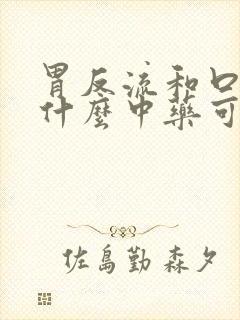 胃反流和口
什麼中藥可
佐島勤 森夕